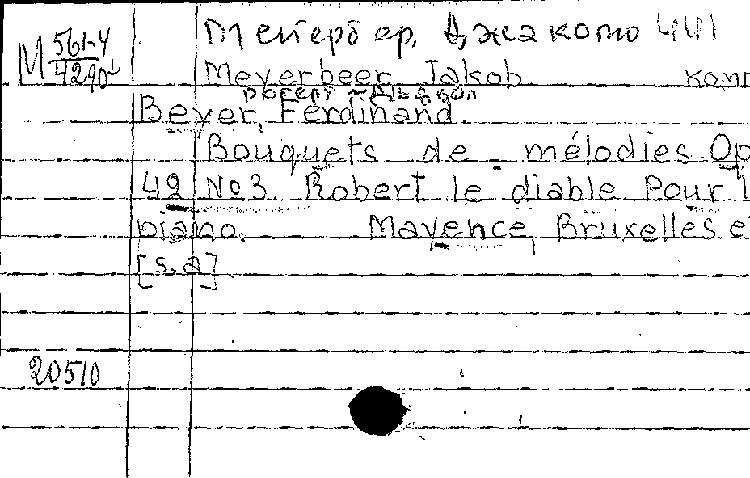 М 561-4 / 4290
Мейербер, Джакомо 441
Meyerbeer, Jakob комп
Роберт-Дьявол
Beyer, Ferdinand.
Bouquets de mélodies Op
42 No3. Robert le diable Pour l
piano. Mayence, Bruxelles e
[s.a]
20510